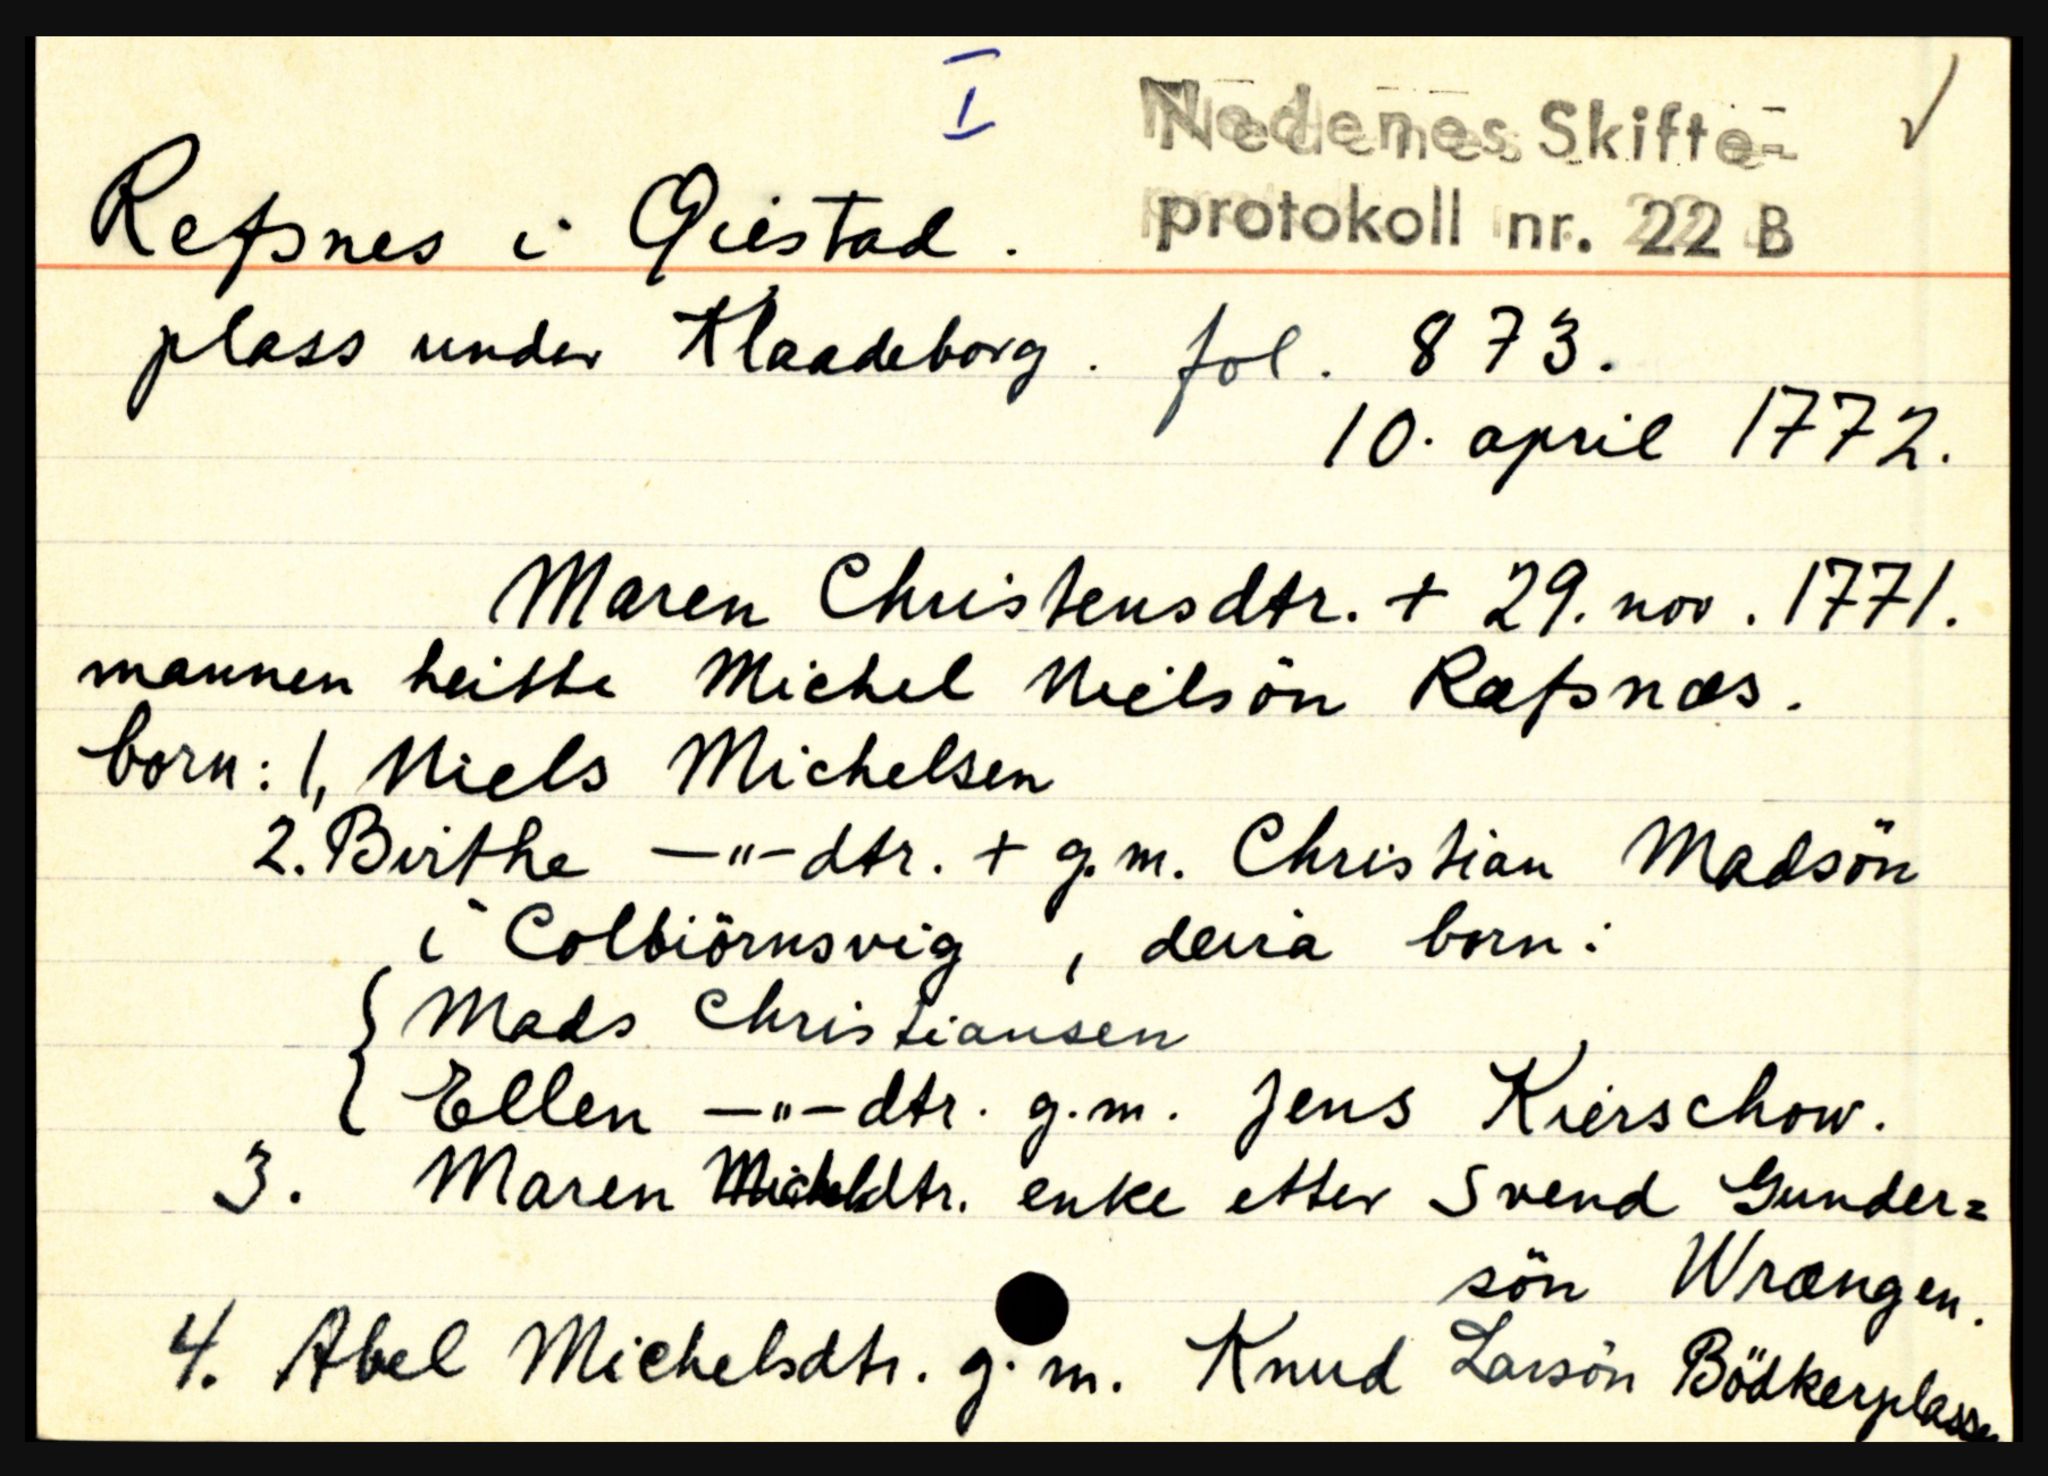 I
Nedenes Skifte-
protokoll nr. 22 B
✓
Refsnes i Øiestad.
plass under Klaadeborg. fol. 873.
10. april 1772.
Maren Christensdtr. + 29. nov. 1771.
mannen heitte Michel Nielsön Ræfsnæs.
born: 1, Niels Michelsen
2. Birthe —"— dtr. + g.m. Christian Madsön
i Colbiörnsvig, deira born:
{ Mads Christiansen
{ Ellen —"— dtr. g.m. Jens Kierschow.
3. Maren Micheldtr. enke etter Svend Gunder=
sön Wrængen.
4. Abel Michelsdtr. g.m. Knud Larsön Bödkerplassen